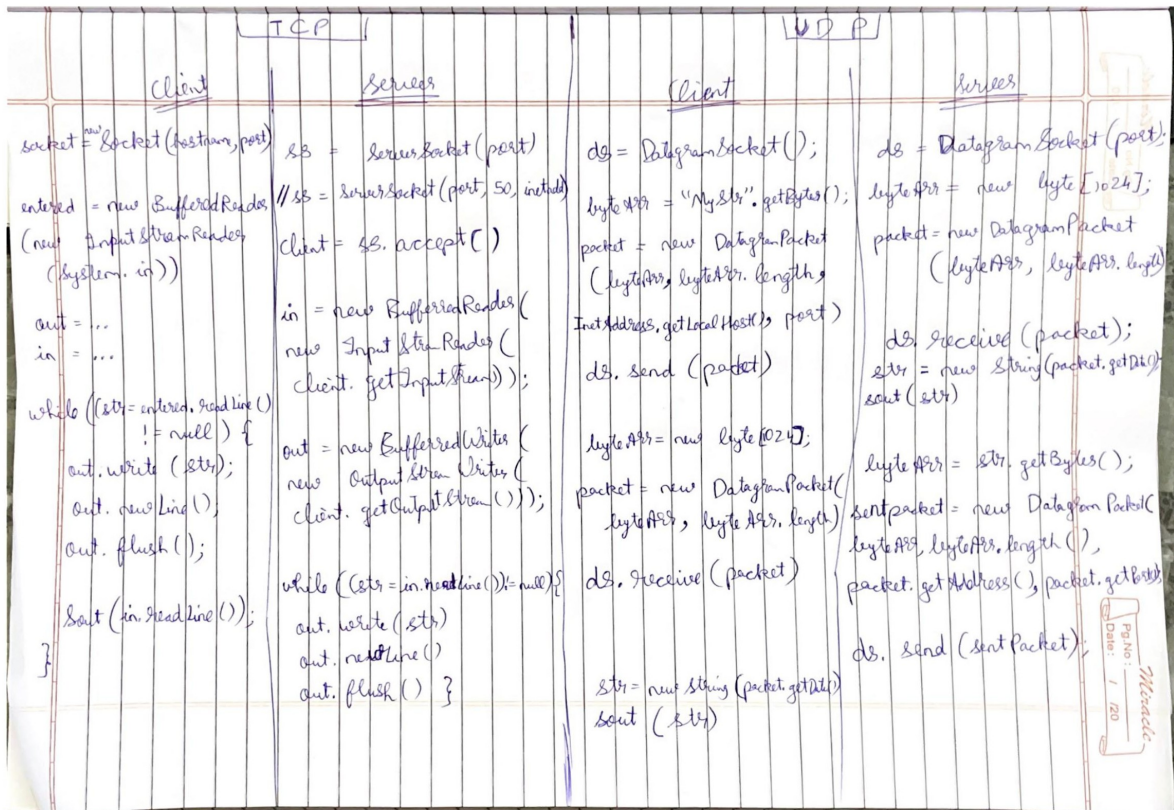 TCP
Client
socket = new Socket(hostnam, port)
entered = new BufferedReader
(new InputStramReader
(System.in))
out = ...
in = ...
while ((str = entered.readLine()
!= null) {
out.write (str);
out.newLine();
out.flush();
Sout (in.readLine());
}
Server
ss = serverSocket(port)
//ss = serverSocket(port, 50, inetadd)
client = ss.accept()
in = new BufferredReader(
new InputStraReader(
client.getInputStream()));
out = new BufferredWriter(
new OutputStrem Writer(
client.getOutputStrem()));
while ((str = in.readLine()) != null){
out.write(str)
out.newLine()
out.flush() }
UDP
Client
ds = DatagramSocket();
byteArr = "MyStr".getBytes();
packet = new DatagramPacket
(byteArr, byteArr.length,
InetAddress.getLocalHost(), port)
ds.send (packet)
byteArr = new byte[1024];
packet = new DatagramPacket(
byteArr, byteArr.length)
ds.receive (packet)
str = new String (packet.getData())
sout (str)
Server
ds = DatagramSocket(port);
byteArr = new byte[1024];
packet = new DatagramPacket
(byteArr, byteArr.length)
ds.receive (packet);
str = new String(packet.getData());
sout(str)
byteArr = str.getBytes();
sentpacket = new DatagramPacket(
byteArr, byteArr.length(),
packet.getAddress(), packet.getPort());
ds.send (sentPacket);
Miracle
Pg.No :
Date : / /20